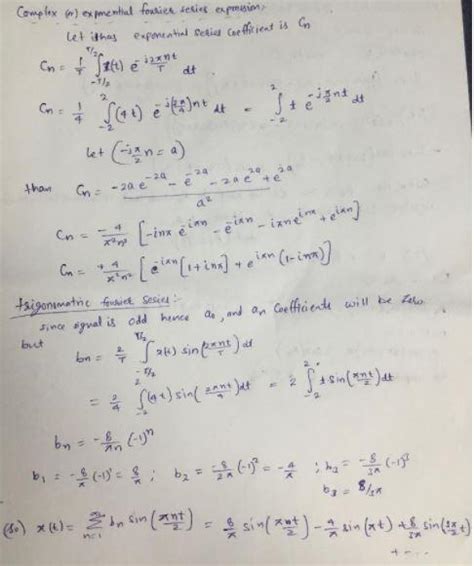 Complex (or) exponential fourier series expression:-
Let it has exponential series coefficient is Cn
Cn = 1/T ∫_{-T/2}^{T/2} x(t) e^{-j2πnt/T} dt
Cn = 1/4 ∫_{-2}^{2} (4t) e^{-j(2π/4)nt} dt = ∫_{-2}^{2} t e^{-jπ/2 nt} dt
Let (-jπ/2 n = a)
than Cn = (-2a e^{-2a} - e^{-2a} - 2a e^{2a} + e^{2a}) / a²
Cn = -4/π²n² [-inπ e^{iπn} - e^{-iπn} - iπn e^{inπ} + e^{iπn}]
Cn = +4/π²n² [e^{-iπn}[1+inπ] + e^{iπn}(1-inπ)]
trigonometric fourier series:-
since signal is odd hence a0, and an coefficients will be zero
but
bn = 2/T ∫_{-T/2}^{T/2} x(t) sin(2πnt/T) dt
= 2/4 ∫_{-2}^{2} (4t) sin(2πnt/4) dt = 2 ∫_{-2}^{2} t sin(πnt/2) dt
bn = -8/πn (-1)^n
b1 = -8/π (-1)¹ = 8/π ; b2 = -8/2π (-1)² = -4/π ; b3 = -8/3π (-1)³
b3 = 8/3π
(So) x(t) = ∑_{n=1}^{∞} bn sin(πnt/2) = 8/π sin(πnt/2) - 4/π sin(πt) + 8/3π sin(3π/2 t)
+ ...